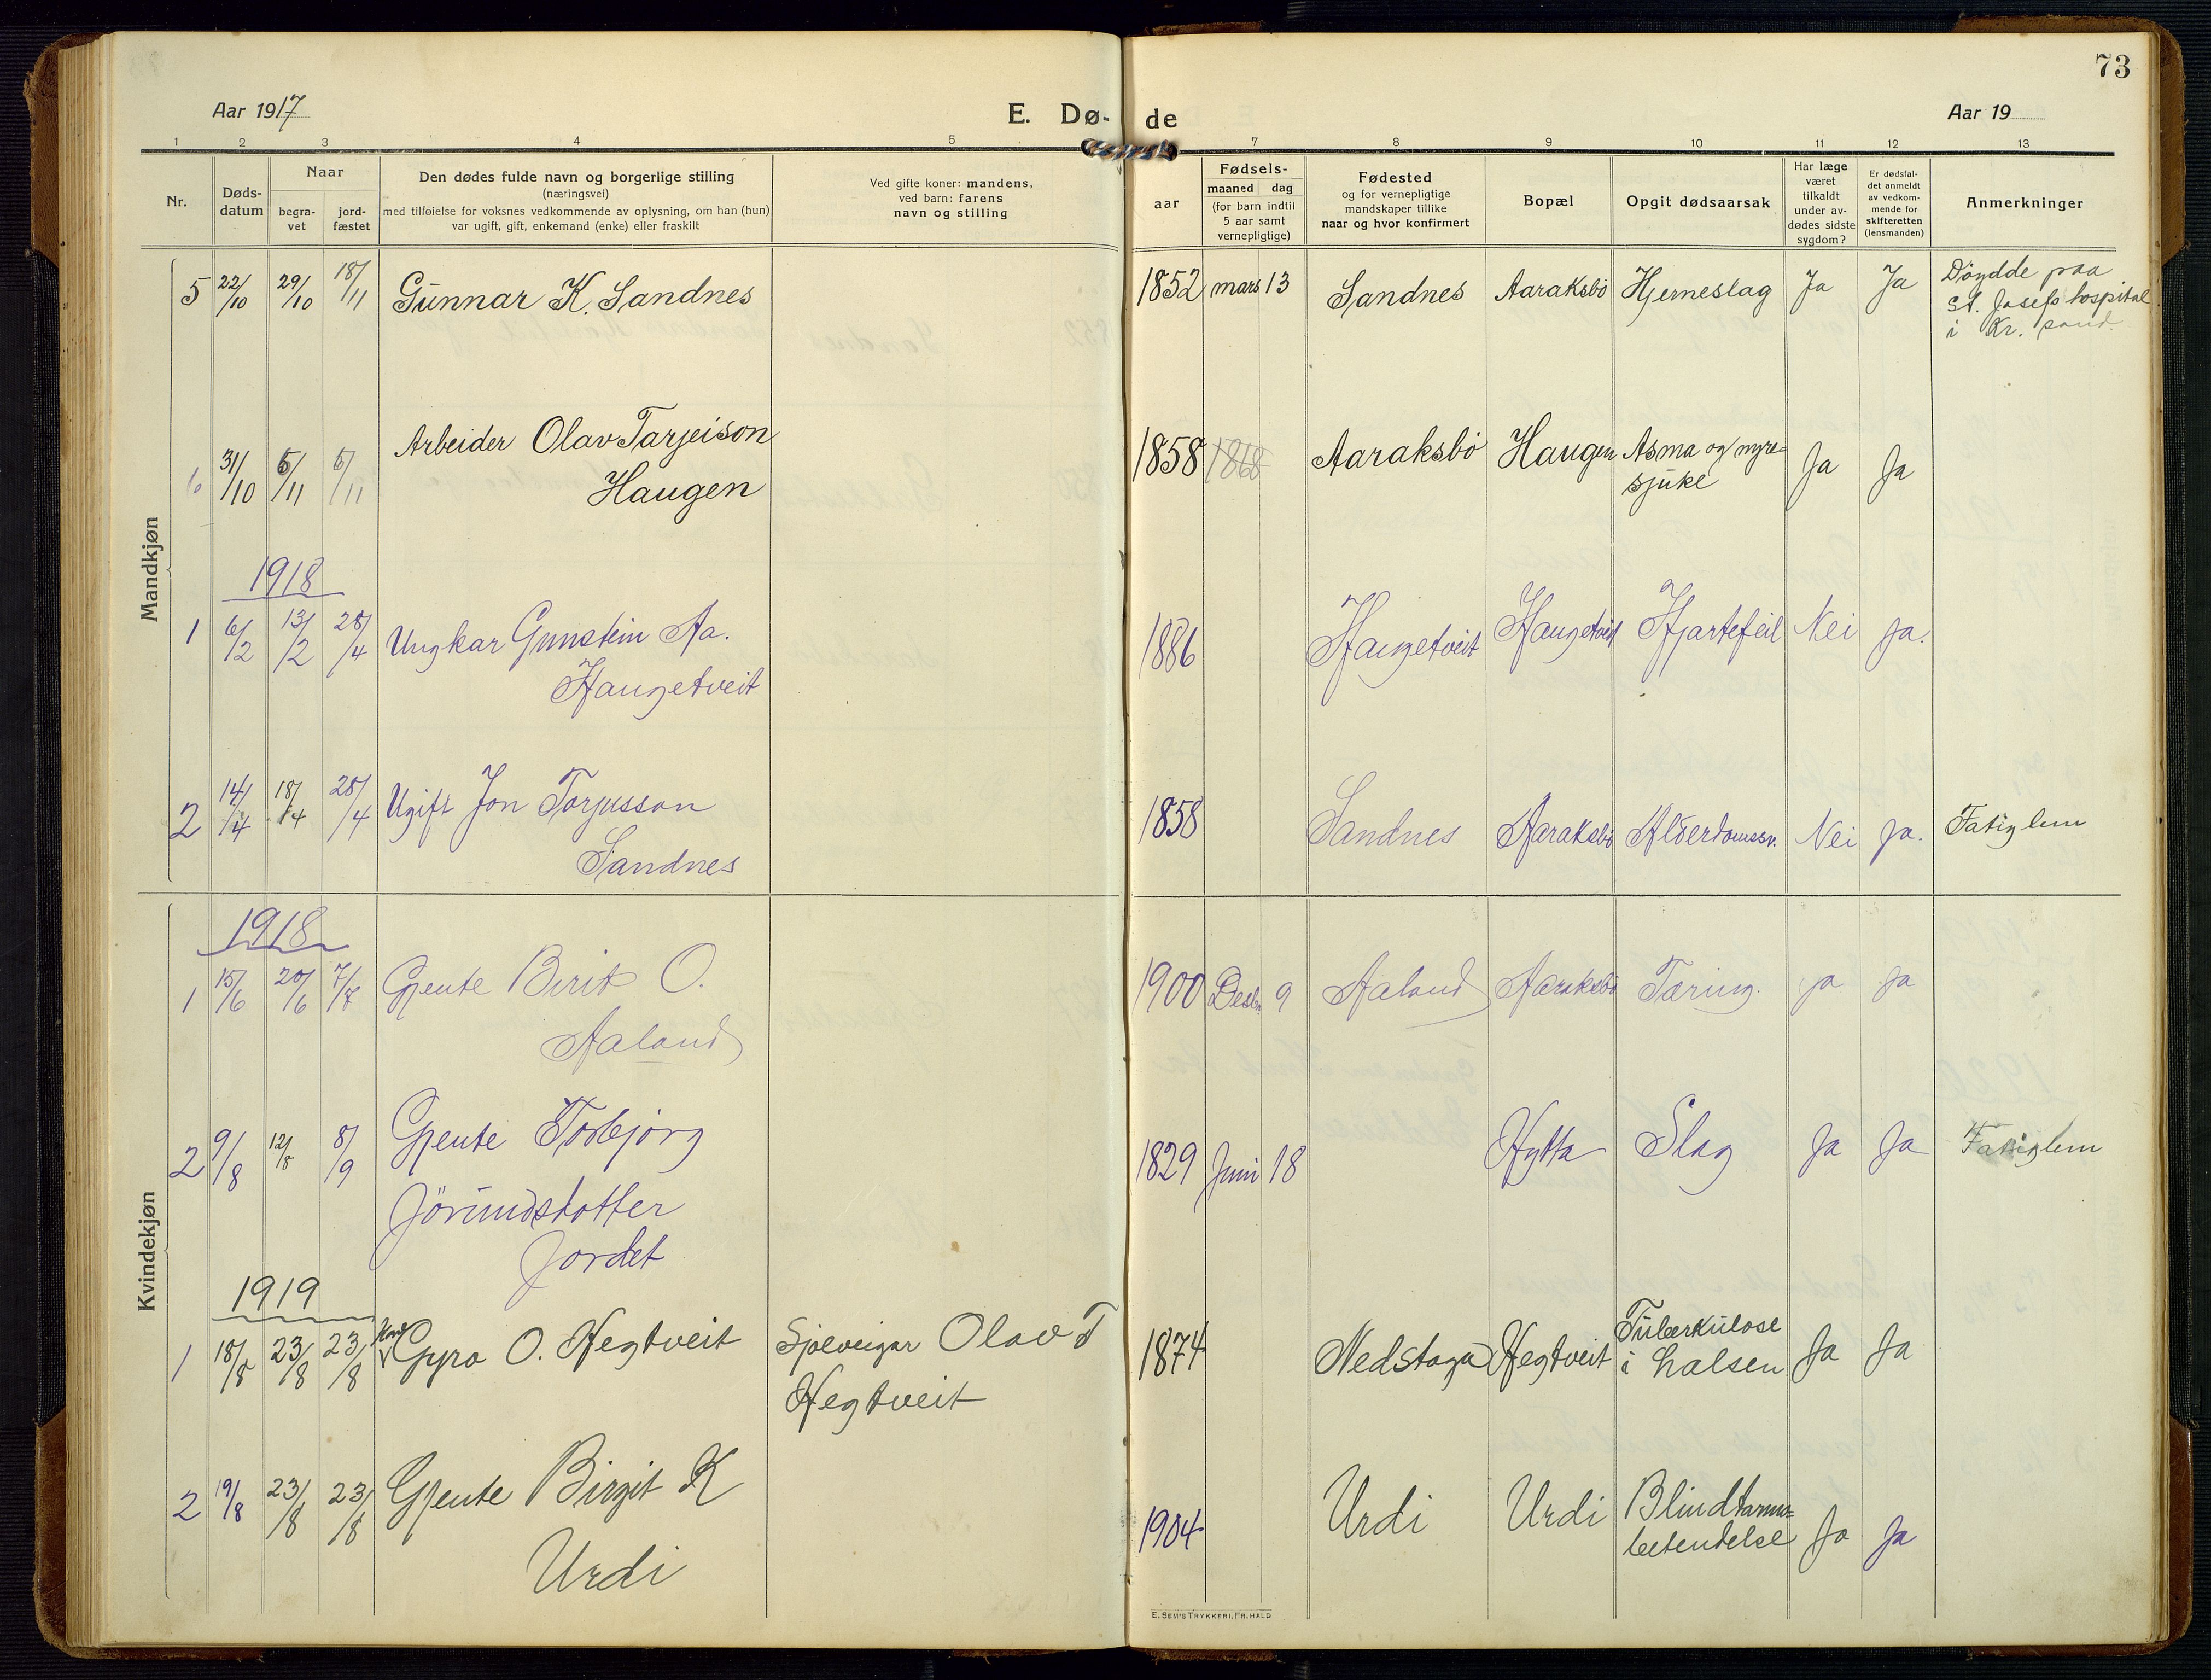 73
Aar 1917
E. Dø-
de
Aar 19
1 2 3 4 5 7 8 9 10 11 12 13
Nr.
Døds-
datum
Naar
begra-
vet
jord-
fæstet
Den dødes fulde navn og borgerlige stilling
(næringsvei)
med tilføielse for voksnes vedkommende av oplysning, om han (hun)
var ugift, gift, enkemand (enke) eller fraskilt
Ved gifte koner: mandens,
ved barn: farens
navn og stilling
Fødsels-
aar
maaned
dag
(for barn indtil
5 aar samt
vernepligtige)
Fødested
og for vernepligtige
mandskaper tillike
naar og hvor konfirmert
Bopæl
Opgit dødsaarsak
Har læge
været
tilkaldt
under av-
dødes sidste
sygdom?
Er dødsfal-
det anmeldt
av vedkom-
mende for
skifteretten
(lensmanden)
Anmerkninger
Mandkjøn
5 22/10 29/10 18/11 Gunnar K. Sandnes 1852 mars 13 Sandnes Aaraksbø Hjerneslag Ja Ja Døydde paa
St. Josefs hospital
i Kr. sand.
6 31/10 6/11 6/11 Arbeider Olav Tarjeison 1858 1868 Aaraksbø Haugen Asma og nyre=
Haugen sjuke Ja Ja
1918
1 6/2 13/2 28/4 Ungkar Gunstein Aa. 1886 Haugetveit Haugetveit Hjartefeil Nei Ja.
Haugetveit
2 14/4 18/4 28/4 Ugift Jon Torjusson 1858 Sandnes Aaraksbø Alderdomssv. Nei Ja. Fatiglem
Sandnes
Kvindekjøn
1918
1 15/6 20/6 7/7 Gjente Birit O. 1900 Desbr. 9 Aaland Aaraksbø Tæring. Ja Ja
Aaland
2 9/8 12/8 8/9 Gjente Torbjørg 1829 Juni 18 Hytta Slag Ja Ja Fatiglem
Jörundsdotter
Jordet
1919
1 18/8 23/8 23/8 Kone Gyro O. Hegtveit Sjølveigar Olav T 1874 Nedstøga Hegtveit Tuberkulose
Hegtveit i halsen Ja Ja
2 19/8 23/8 23/8 Gjente Birgit K 1904 Urdi Urdi Blindtarms=
Urdi betendelse Ja Ja
E. SEM'S TRYKKERI, FR.HALD